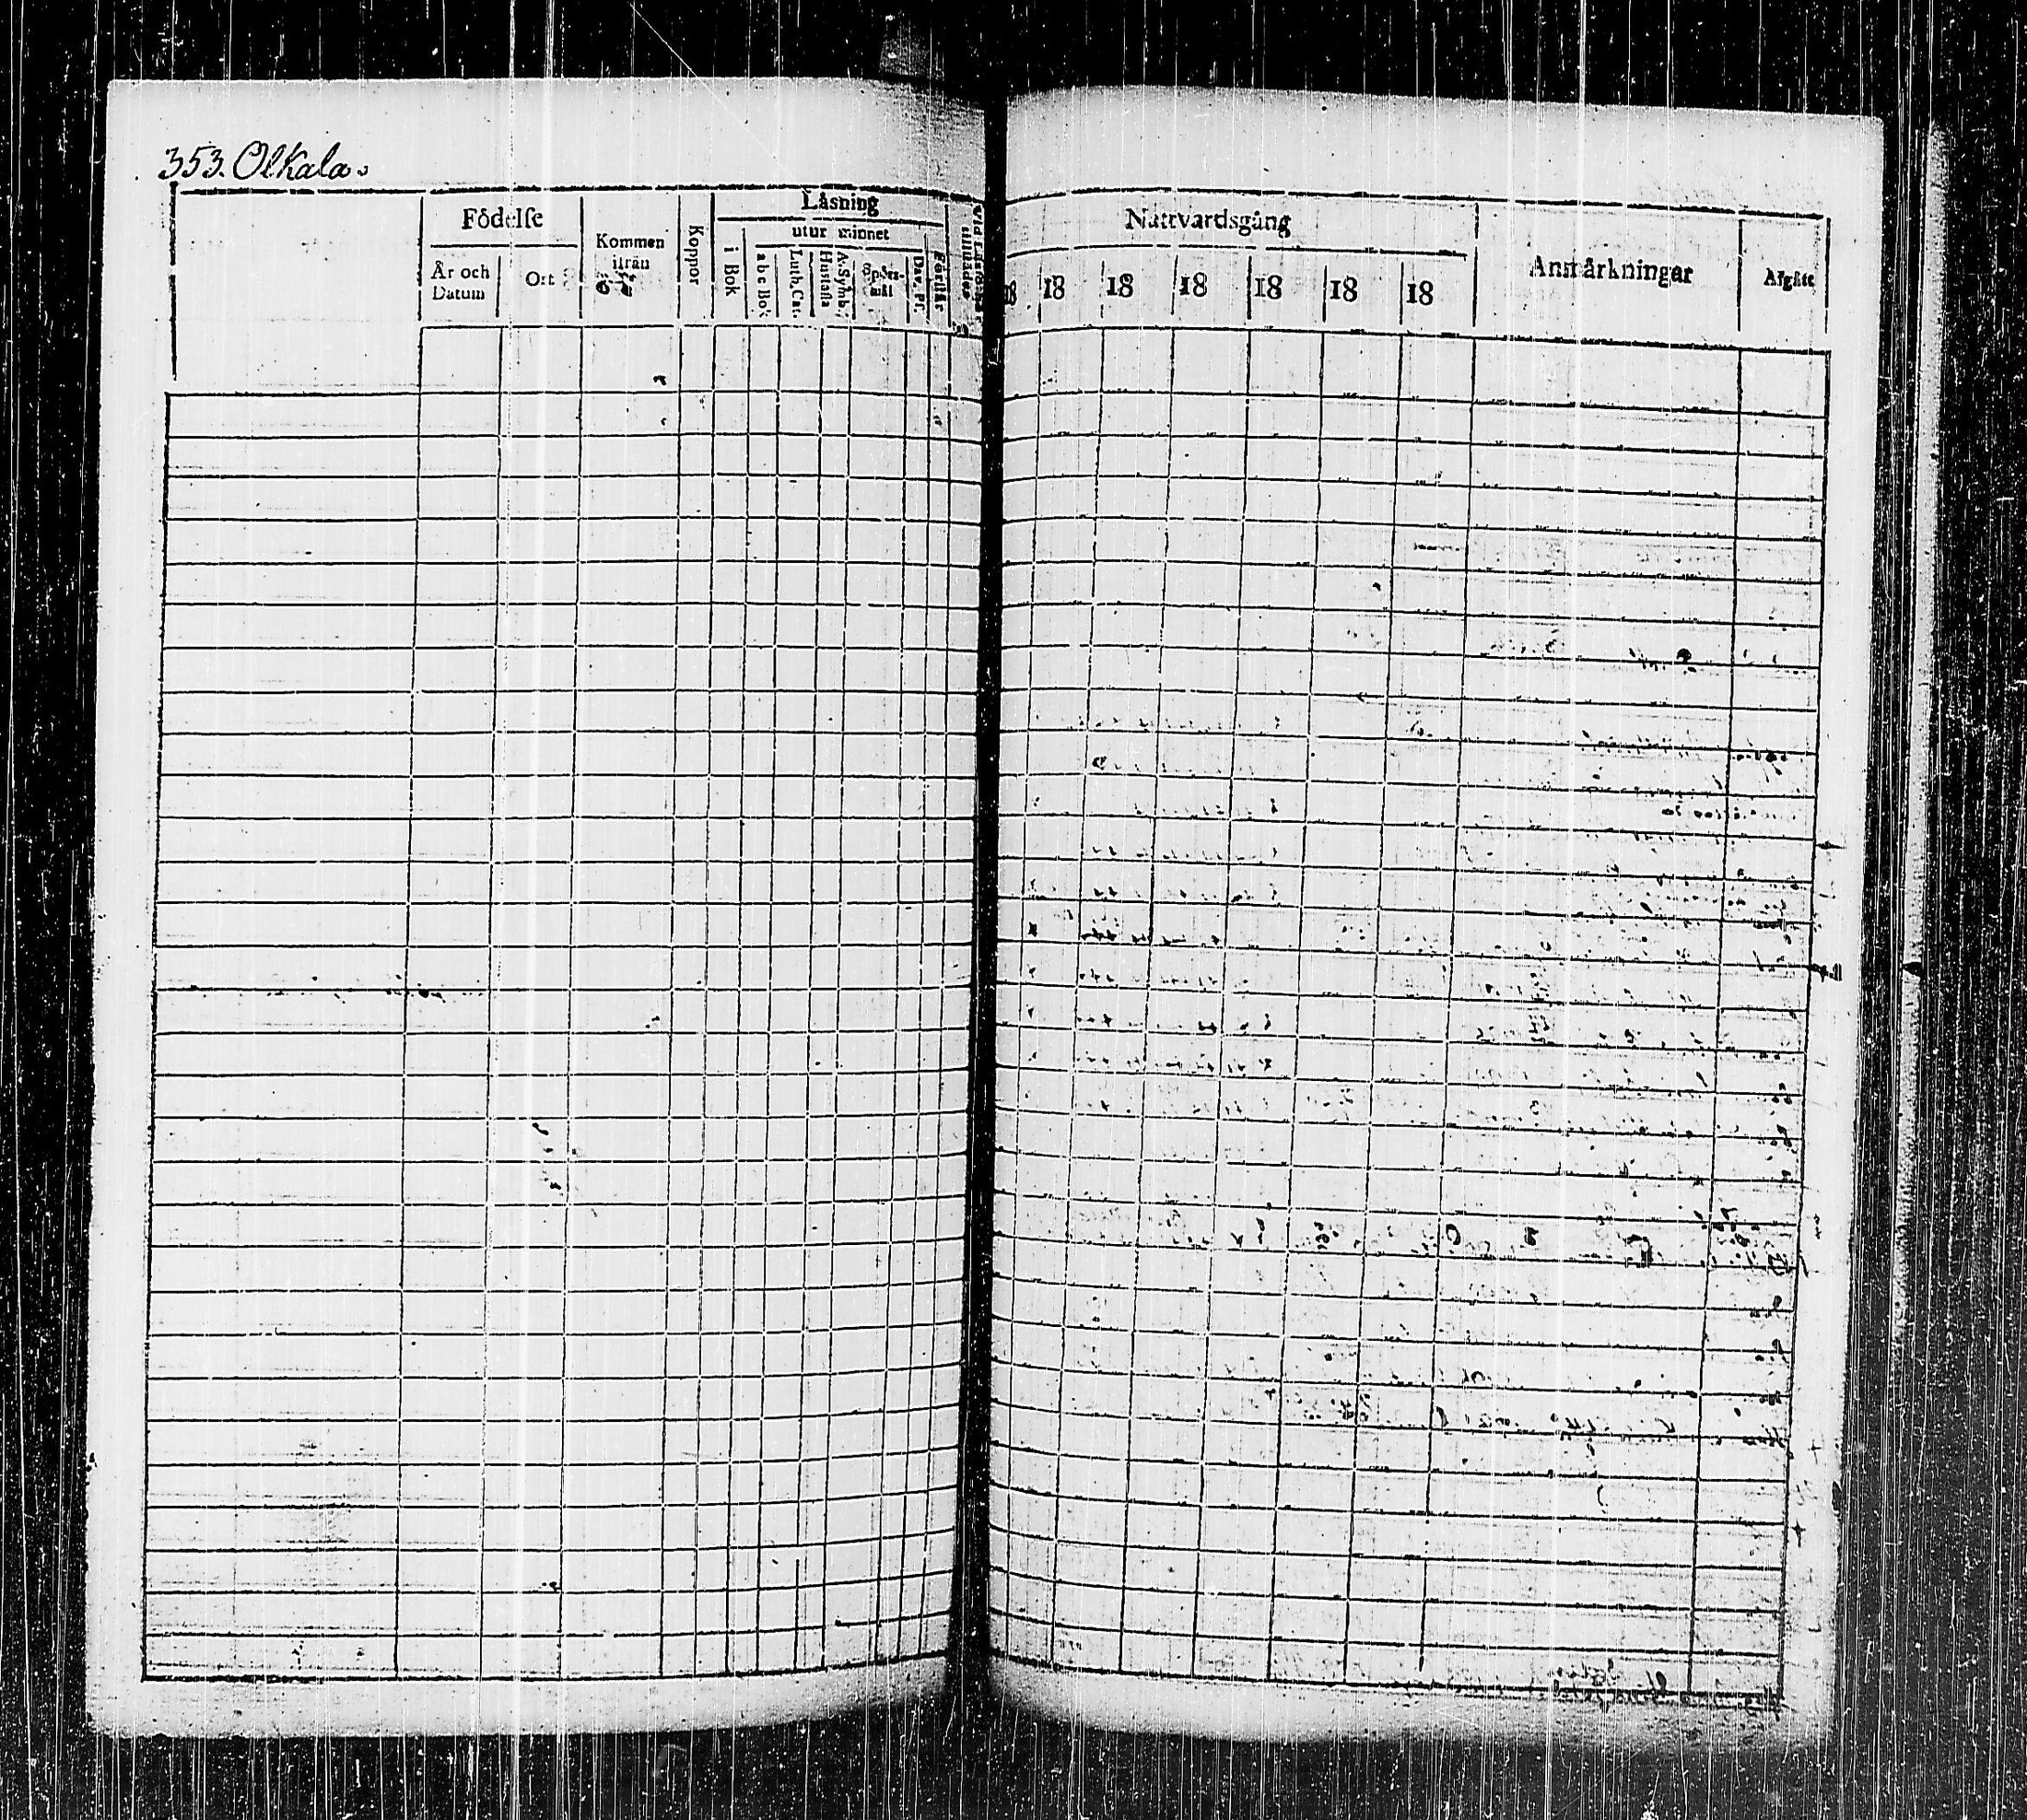 353. Olkala.
Födelse
År och Datum
Ort
Kommen ifrån
Koppor
Läsning
i Bok
utur minnet
abc Bok
Luth. Cat.
Hustafla
A. Symb.
Spörs-mål
Dav. Ps.
Nattvardsgång
18 18 18 18 18 18 18
Anmärkningar
Afgått